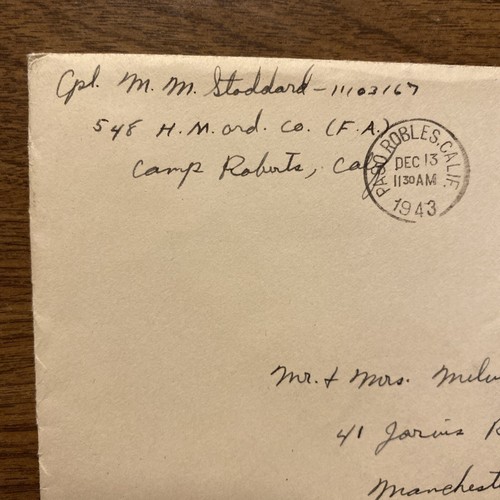 Cpl. M. M. Stoddard - 11103167
548 H. M. ord. Co. (F.A.)
Camp Roberts, Cal
PASO ROBLES, CALIF.
DEC 13
1130 AM
1943
Mr. & Mrs.
41 Jarvis
Manchest